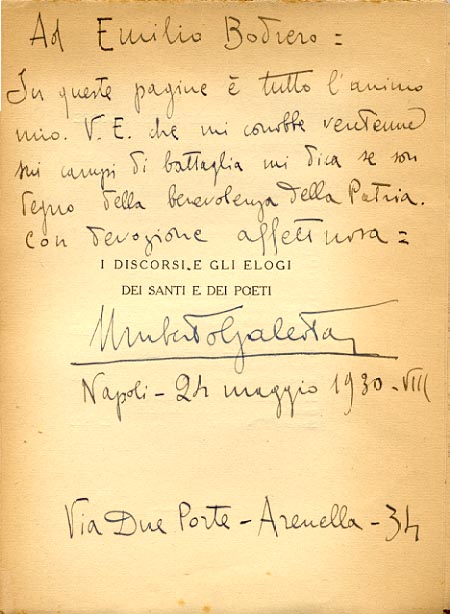 Ad Emilio Bodrero =
In queste pagine è tutto l'animo
mio. V. E. che mi conobbe ventenne
sui campi di battaglia mi dica se son
degno della benevolenza della Patria.
Con devozione affettuosa =
I DISCORSI E GLI ELOGI
DEI SANTI E DEI POETI
Umberto Galeota
Napoli - 24 maggio 1930 - VIII
Via Due Porte - Arenella - 34